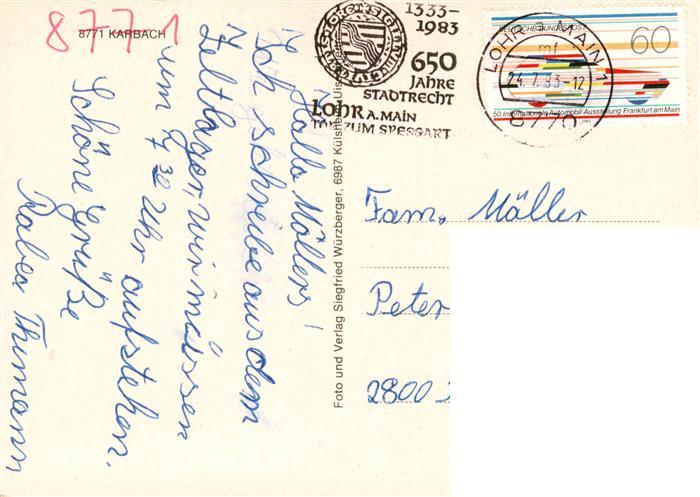 87771
8771 KARBACH
1333-
1983
650
JAHRE
STADTRECHT
LOHR A. MAIN
ZUM SPESSART
LOHR a. MAIN 1
mf
24.7.83-12
8770
DEUTSCHE BUNDESPOST
60
50. Internationale Automobil-Ausstellung Frankfurt am Main
Hallo Möllers!
Ich schreibe aus dem
Zeltlager, wir müssen
um 7³⁰ Uhr aufstehen.
Schöne Grüße
Rabea Thumann
Foto und Verlag Siegfried Würzberger, 6987 Külsheim
Fam. Möller
Peter
2800